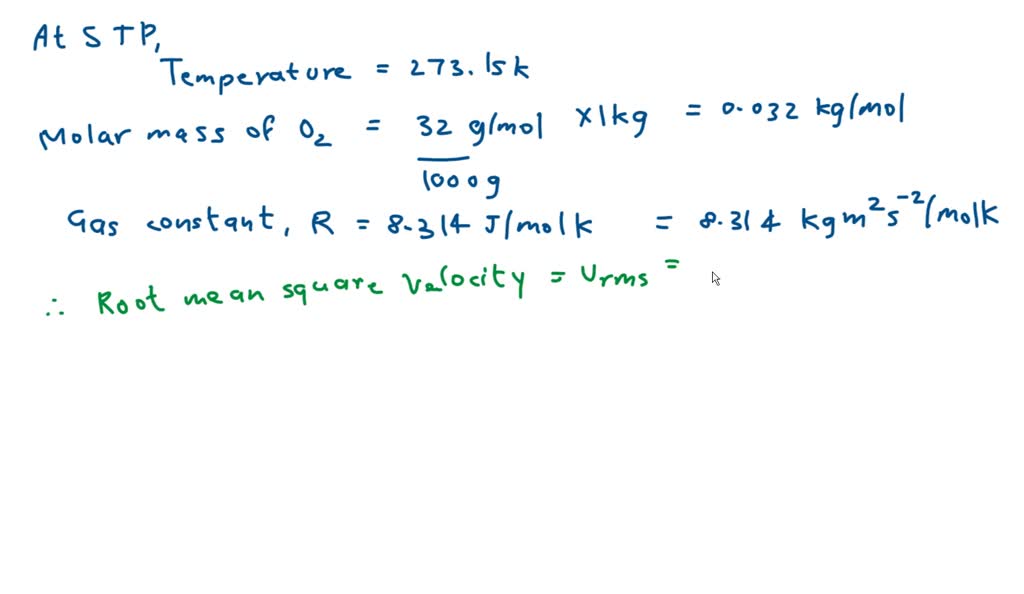 At STP,
Temperature = 273.15k
Molar mass of O2 = 32 g/mol × 1kg = 0.032 kg/mol
1000g
Gas constant, R = 8.314 J/molk = 8.314 kgm²s⁻²/molk
∴ Root mean square Velocity = Urms =